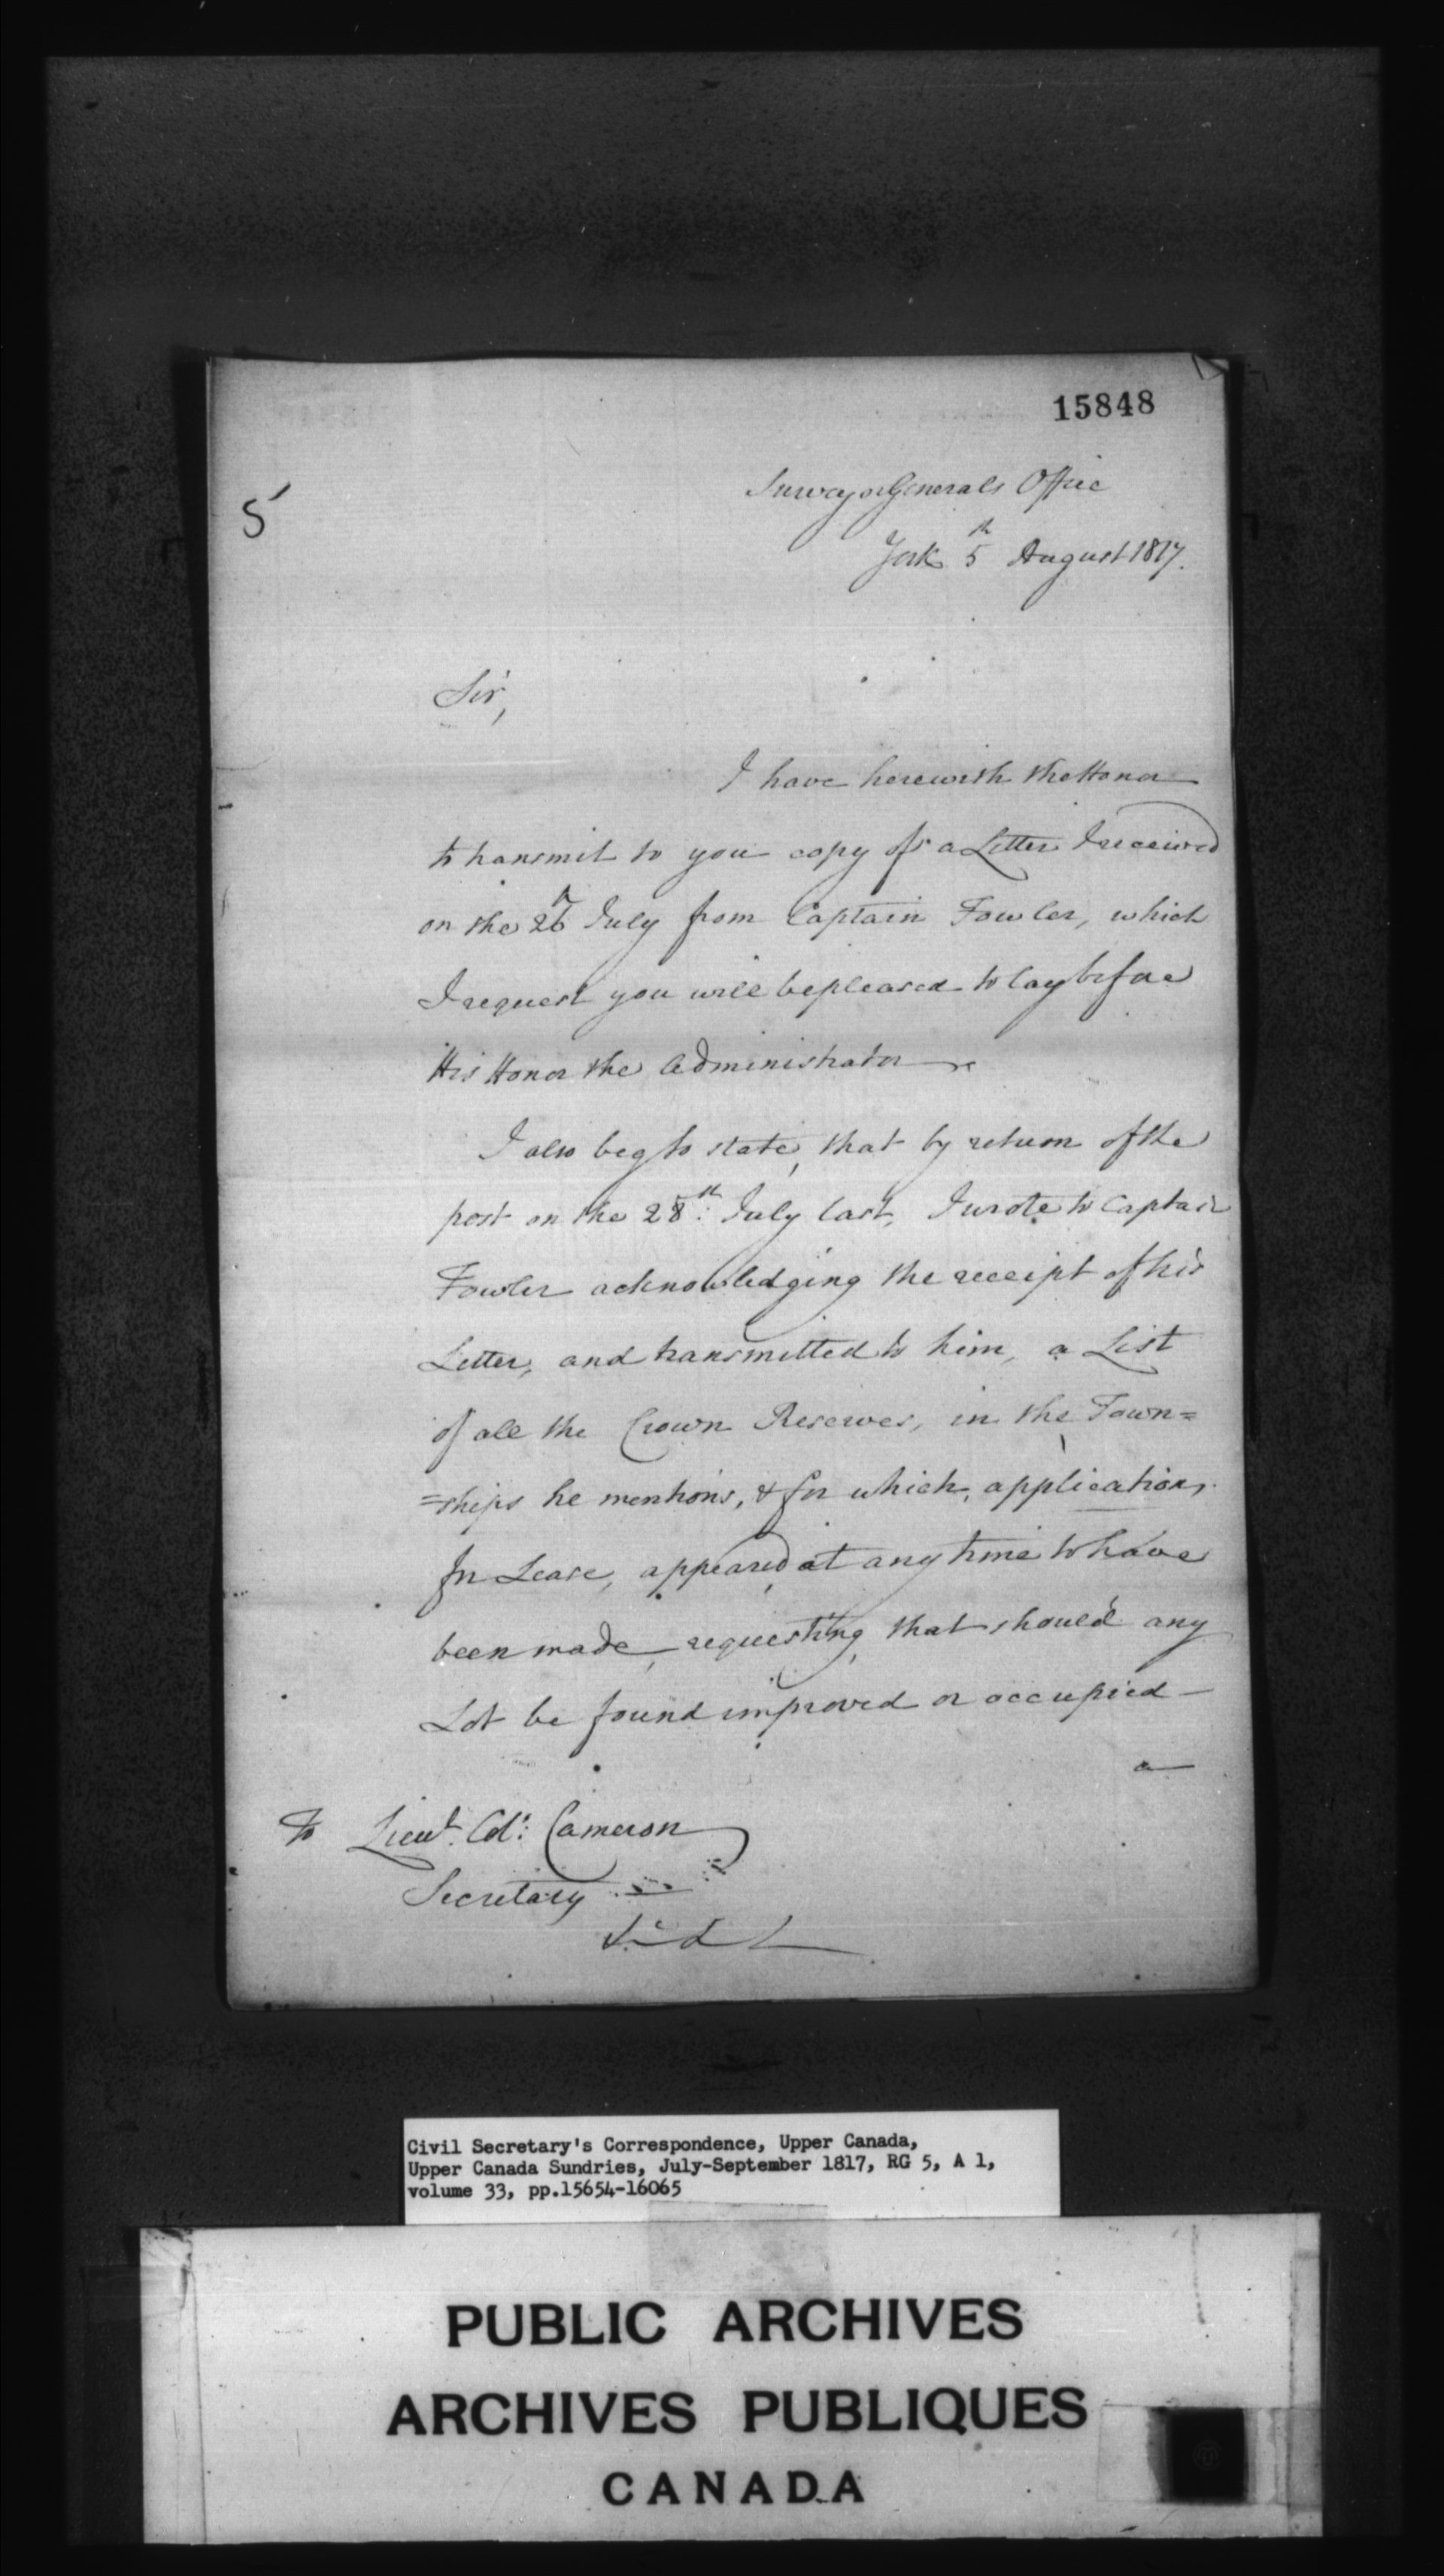 15848
5
Surveyor Generals Office
York 5th August 1817.
Sir,
I have herewith the Honor
to transmit to you copy of a Letter I received
on the 26th July from Captain Fowler, which
I request you will be pleased to lay before
His Honor the Administrator
I also beg to state, that by return of the
post on the 28th: July last, I wrote to Captain
Fowler acknowledging the receipt of his
Letter, and transmitted to him, a List
of all the Crown Reserves, in the Town=
=ships he mentions, & for which, applications
for Lease, appeared at any time to have
been made, requesting, that should any
Lot be found improved or occupied
a
To Lieut. Col: Cameron
Secretary
&c &c
Civil Secretary's Correspondence, Upper Canada,
Upper Canada Sundries, July-September 1817, RG 5, A 1,
volume 33, pp.15654-16065
PUBLIC ARCHIVES
ARCHIVES PUBLIQUES
CANADA